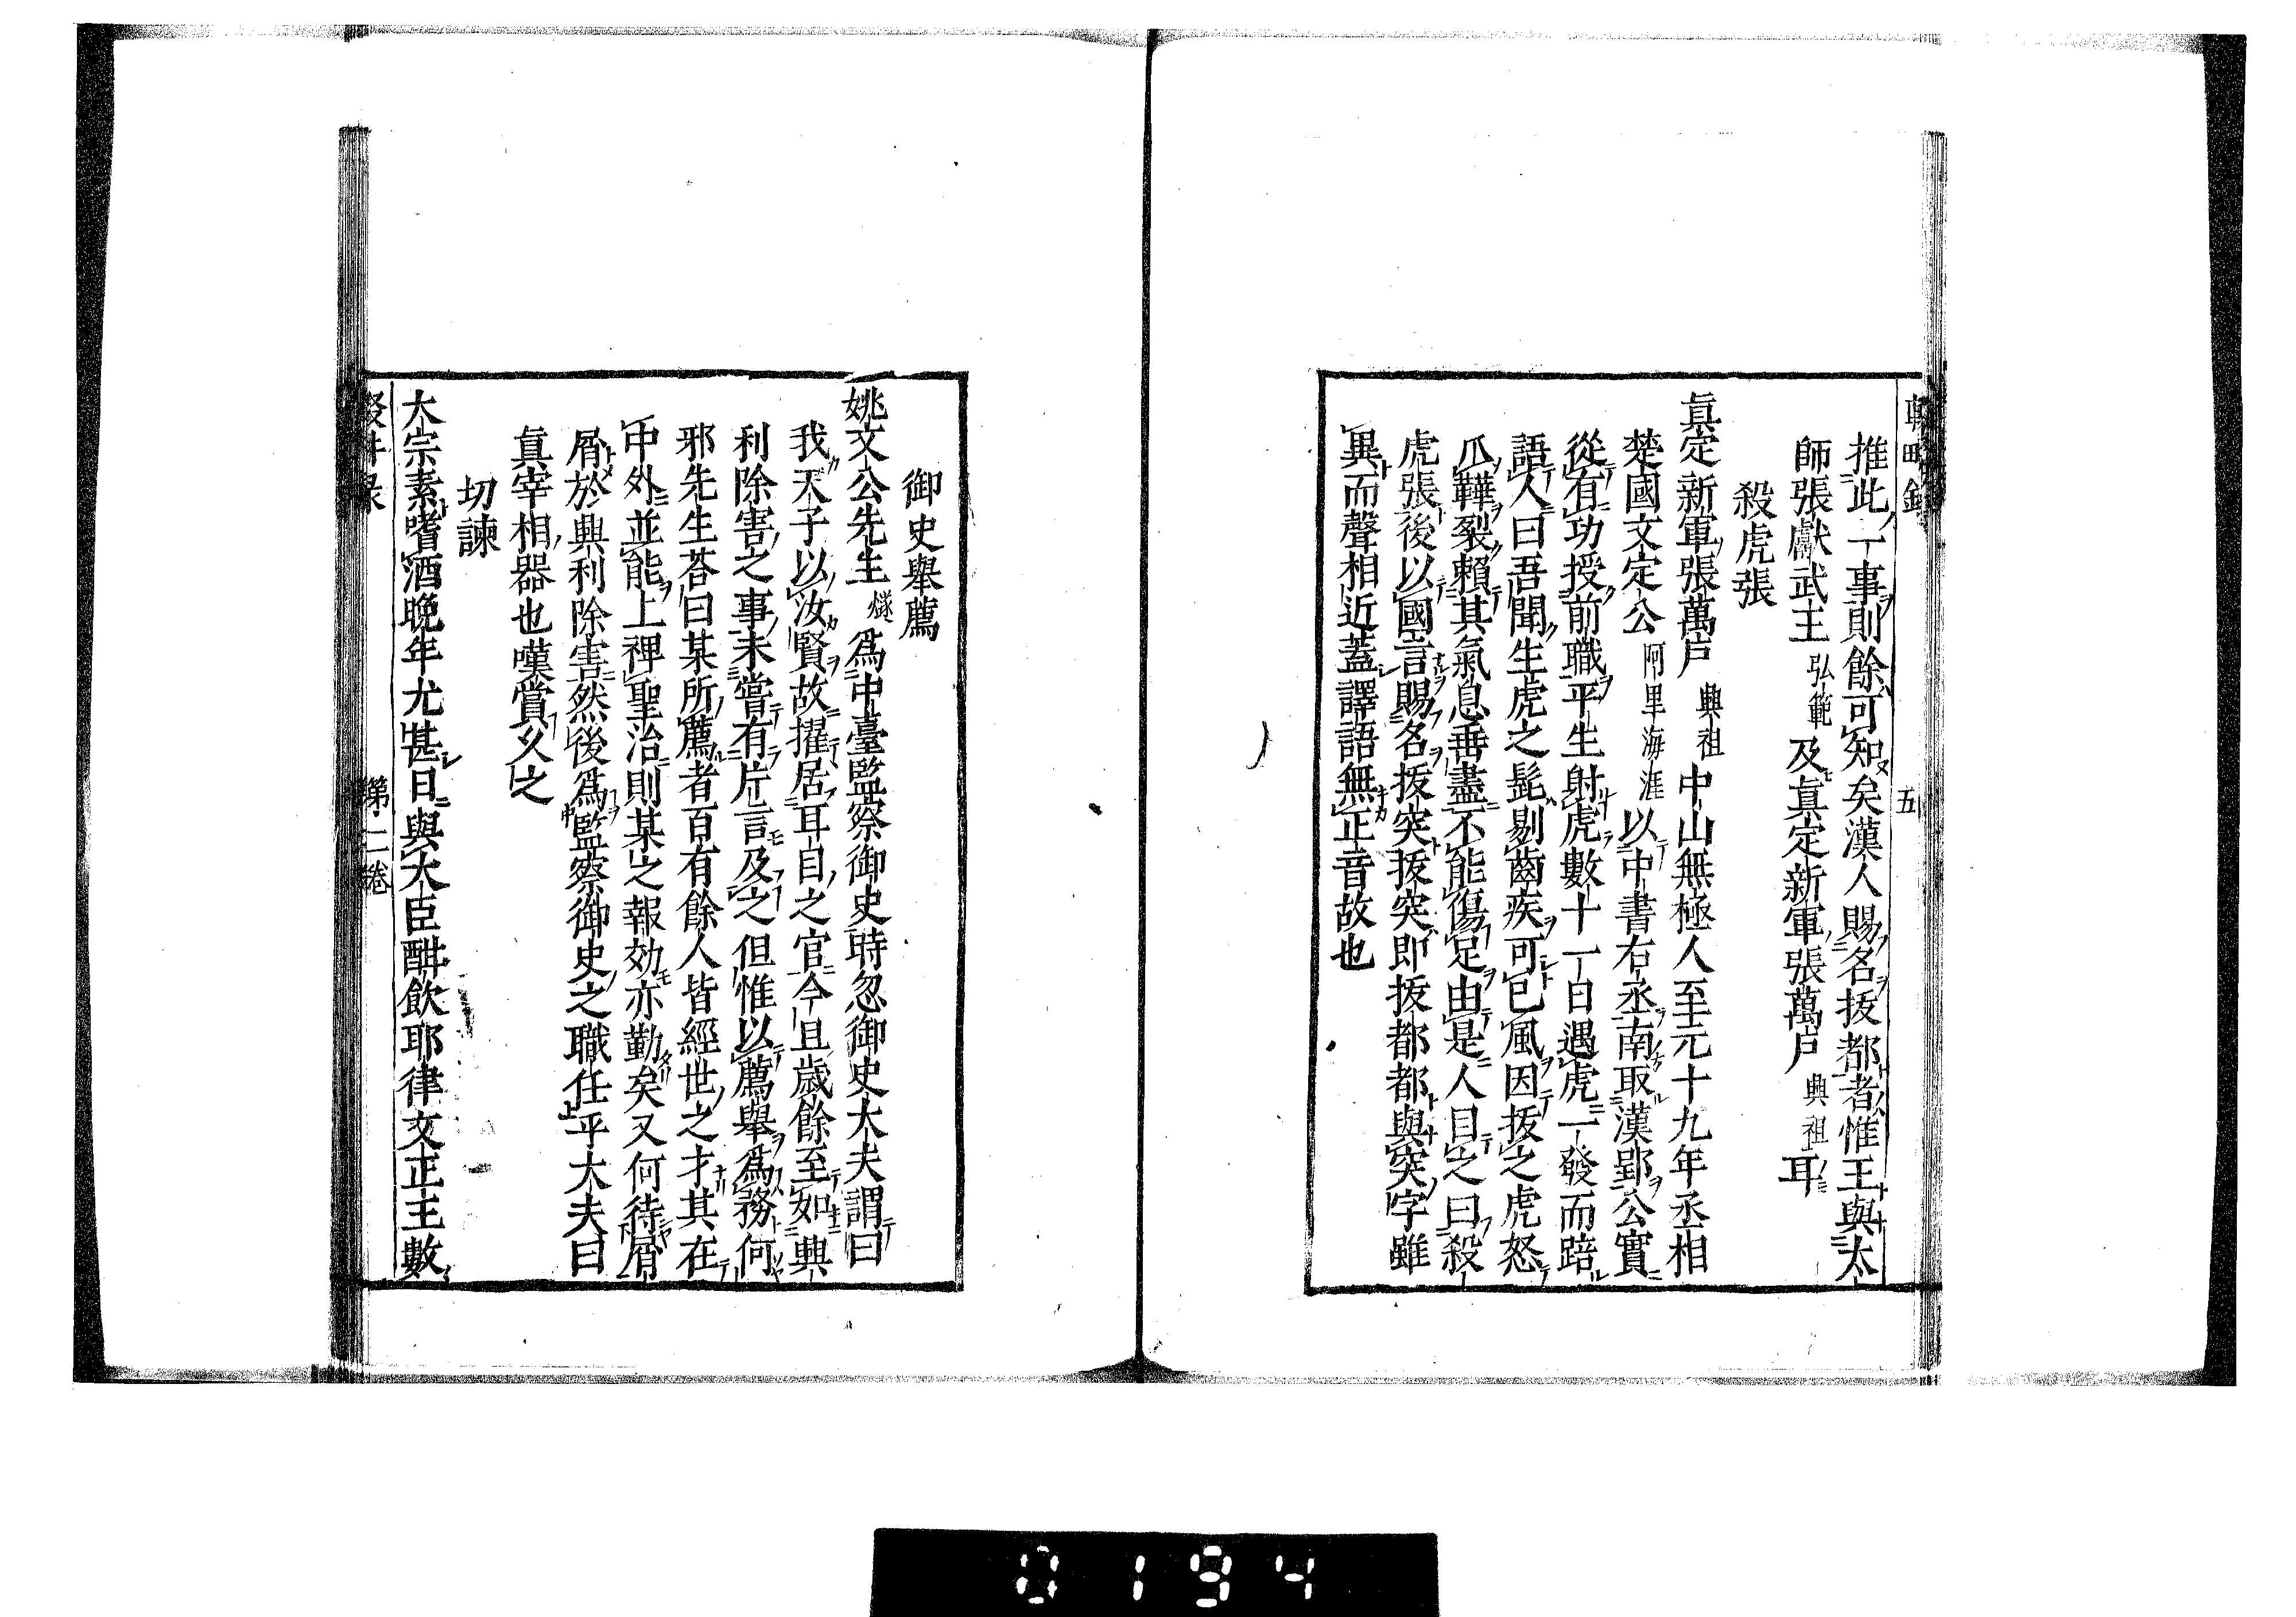 輟畊録
五
推此一事則餘可知矣漢人賜名拔都者惟王與太
師張獻武王弘範及眞定新軍張萬戸興祖耳
殺虎張
眞定新軍張萬戸興祖中山無極人至元十九年丞相
楚國文定公阿里海涯以中書右丞南取漢郢公實
從有功授前職平生射虎數十一日遇虎一發而踣
語人曰吾聞生虎之髭剔齒疾可已風因拔之虎怒
爪鞾裂頼其氣息垂盡不能傷足由是人目之曰殺
虎張後以國言賜名拔突拔突即拔都都與突字雖
異而聲相近蓋譯語無正音故也
御史舉薦
姚文公先生燧爲中臺監察御史時忽御史大夫謂曰
我天子以汝賢故擢居耳目之官今且歳餘至如興
利除害之事未嘗有片言及之但惟以薦舉爲務何
邪先生荅曰某所薦者百有餘人皆經世之才其在
中外並能上禆聖治則某之報効亦勤矣又何待屑
屑於興利除害然後爲監察御史之職任乎大夫曰
眞宰相器也嘆賞久之
切諫
太宗素嗜酒晩年尤甚日與大臣酣飲耶律文正王數
第二卷